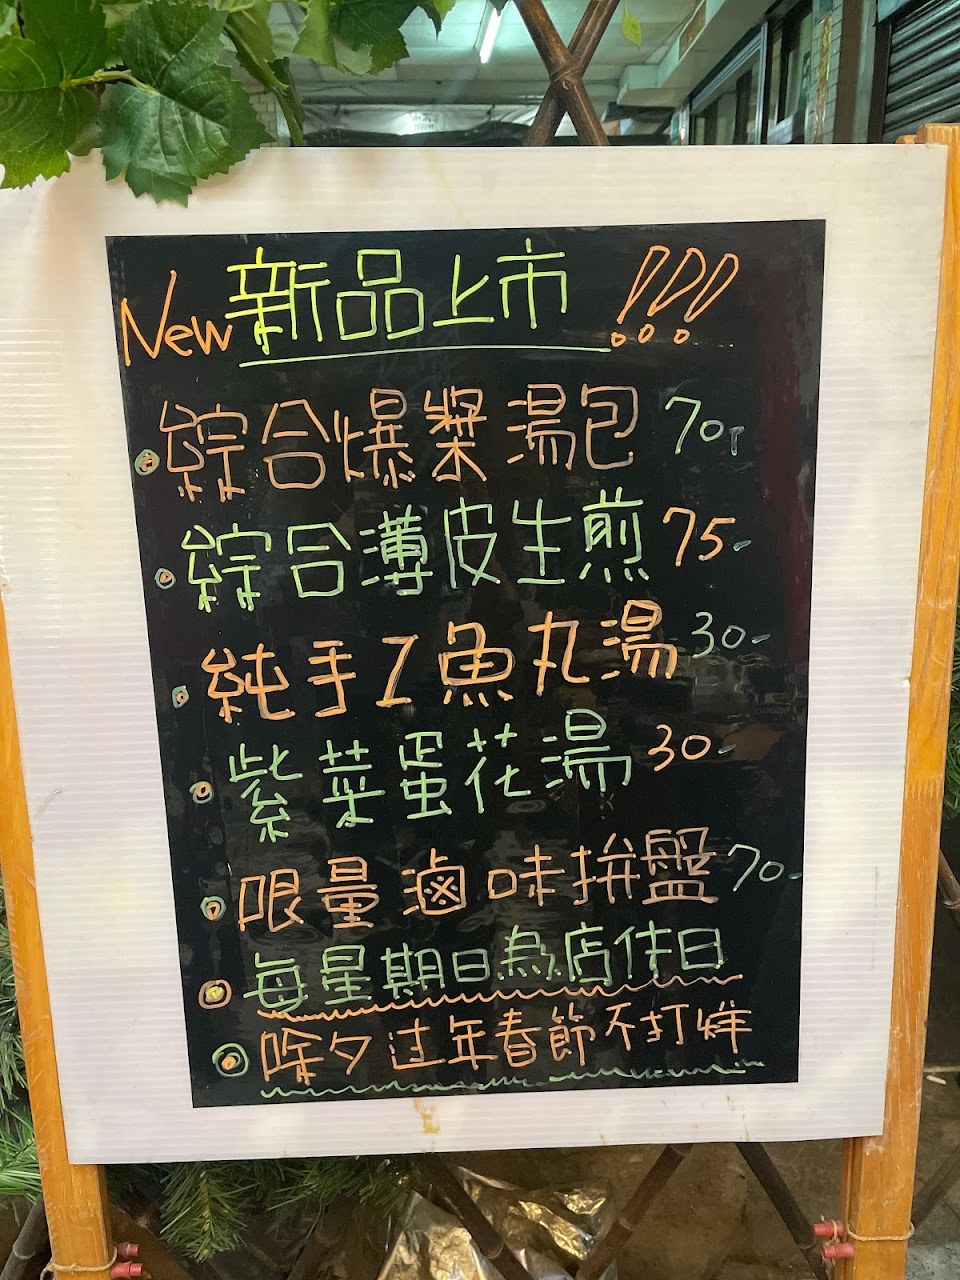 New 新品上市 !!!
綜合爆漿湯包 70-
綜合薄皮生煎 75-
純手工魚丸湯 30-
紫菜蛋花湯 30-
限量滷味拼盤 70-
每星期日為店休日
除夕过年春節不打烊